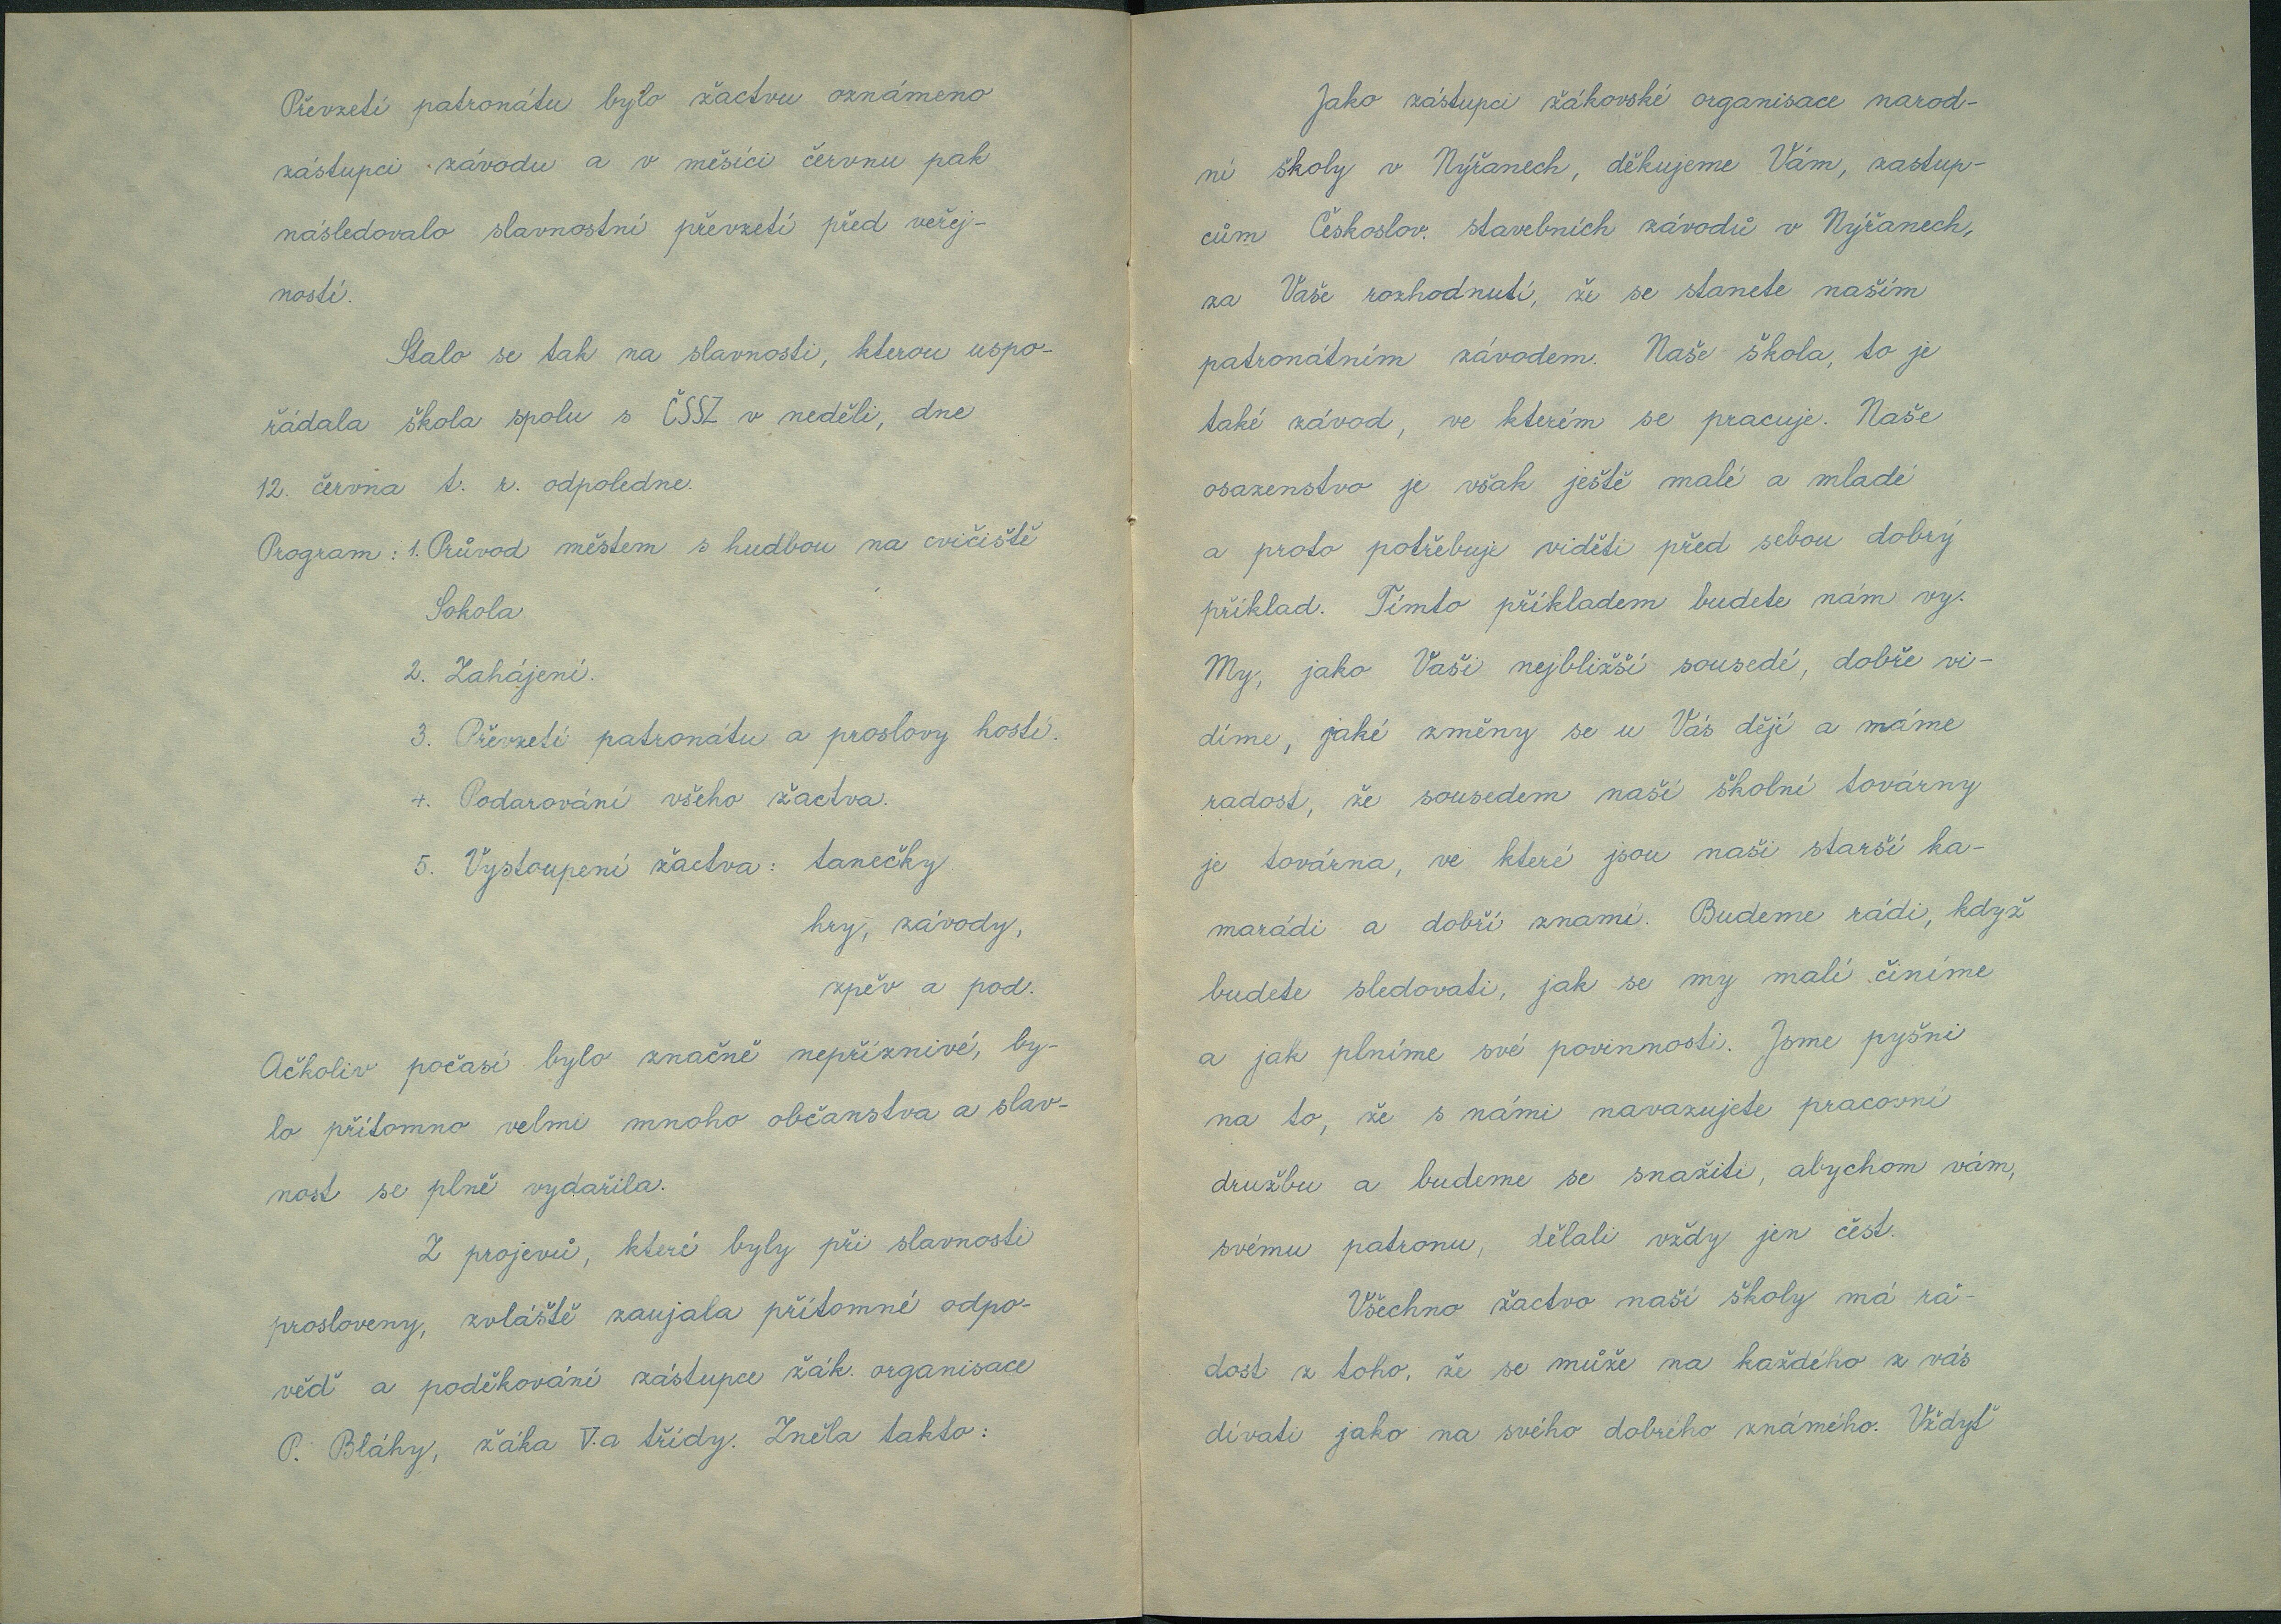 Převzetí patronátu bylo žactvu oznámeno
zástupci závodu a v měsíci červnu pak
následovalo slavnostní převzetí před veřej-
ností.
Stalo se tak na slavnosti, kterou uspo-
řádala škola spolu s ČSSZ v neděli, dne
12. června t. r. odpoledne.
Program: 1. Průvod městem s hudbou na cvičiště
Sokola.
2. Zahájení.
3. Převzetí patronátu a proslovy hostí.
4. Podarování všeho žactva.
5. Vystoupení žactva: tanečky
hry, závody,
zpěv a pod.
Ačkoliv počasí bylo značně nepříznivé, by-
lo přítomno velmi mnoho občanstva a slav-
nost se plně vydařila.
Z projevů, které byly při slavnosti
prosloveny, zvláště zaujala přítomné odpo-
věď a poděkování zástupce žák. organisace
P. Bláhy, žáka V.a třídy. Zněla takto:
Jako zástupci žákovské organisace národ-
ní školy v Nýřanech, děkujeme Vám, zástup-
cům Českoslov. stavebních závodů v Nýřanech,
za Vaše rozhodnutí, že se stanete naším
patronátním závodem. Naše škola, to je
také závod, ve kterém se pracuje. Naše
osazenstvo je však ještě malé a mladé
a proto potřebuje viděti před sebou dobrý
příklad. Tímto příkladem budete nám vy.
My, jako Vaši nejbližší sousedé, dobře vi-
díme, jaké změny se u Vás dějí a máme
radost, že sousedem naší školní továrny
je továrna, ve které jsou naši starší ka-
marádi a dobří známí. Budeme rádi, když
budete sledovati, jak se my malí činíme
a jak plníme své povinnosti. Jsme pyšni
na to, že s námi navazujete pracovní
družbu a budeme se snažiti, abychom vám,
svému patronu, dělali vždy jen čest.
Všechno žactvo naší školy má ra-
dost z toho, že se může na každého z vás
dívati jako na svého dobrého známého. Vždyť